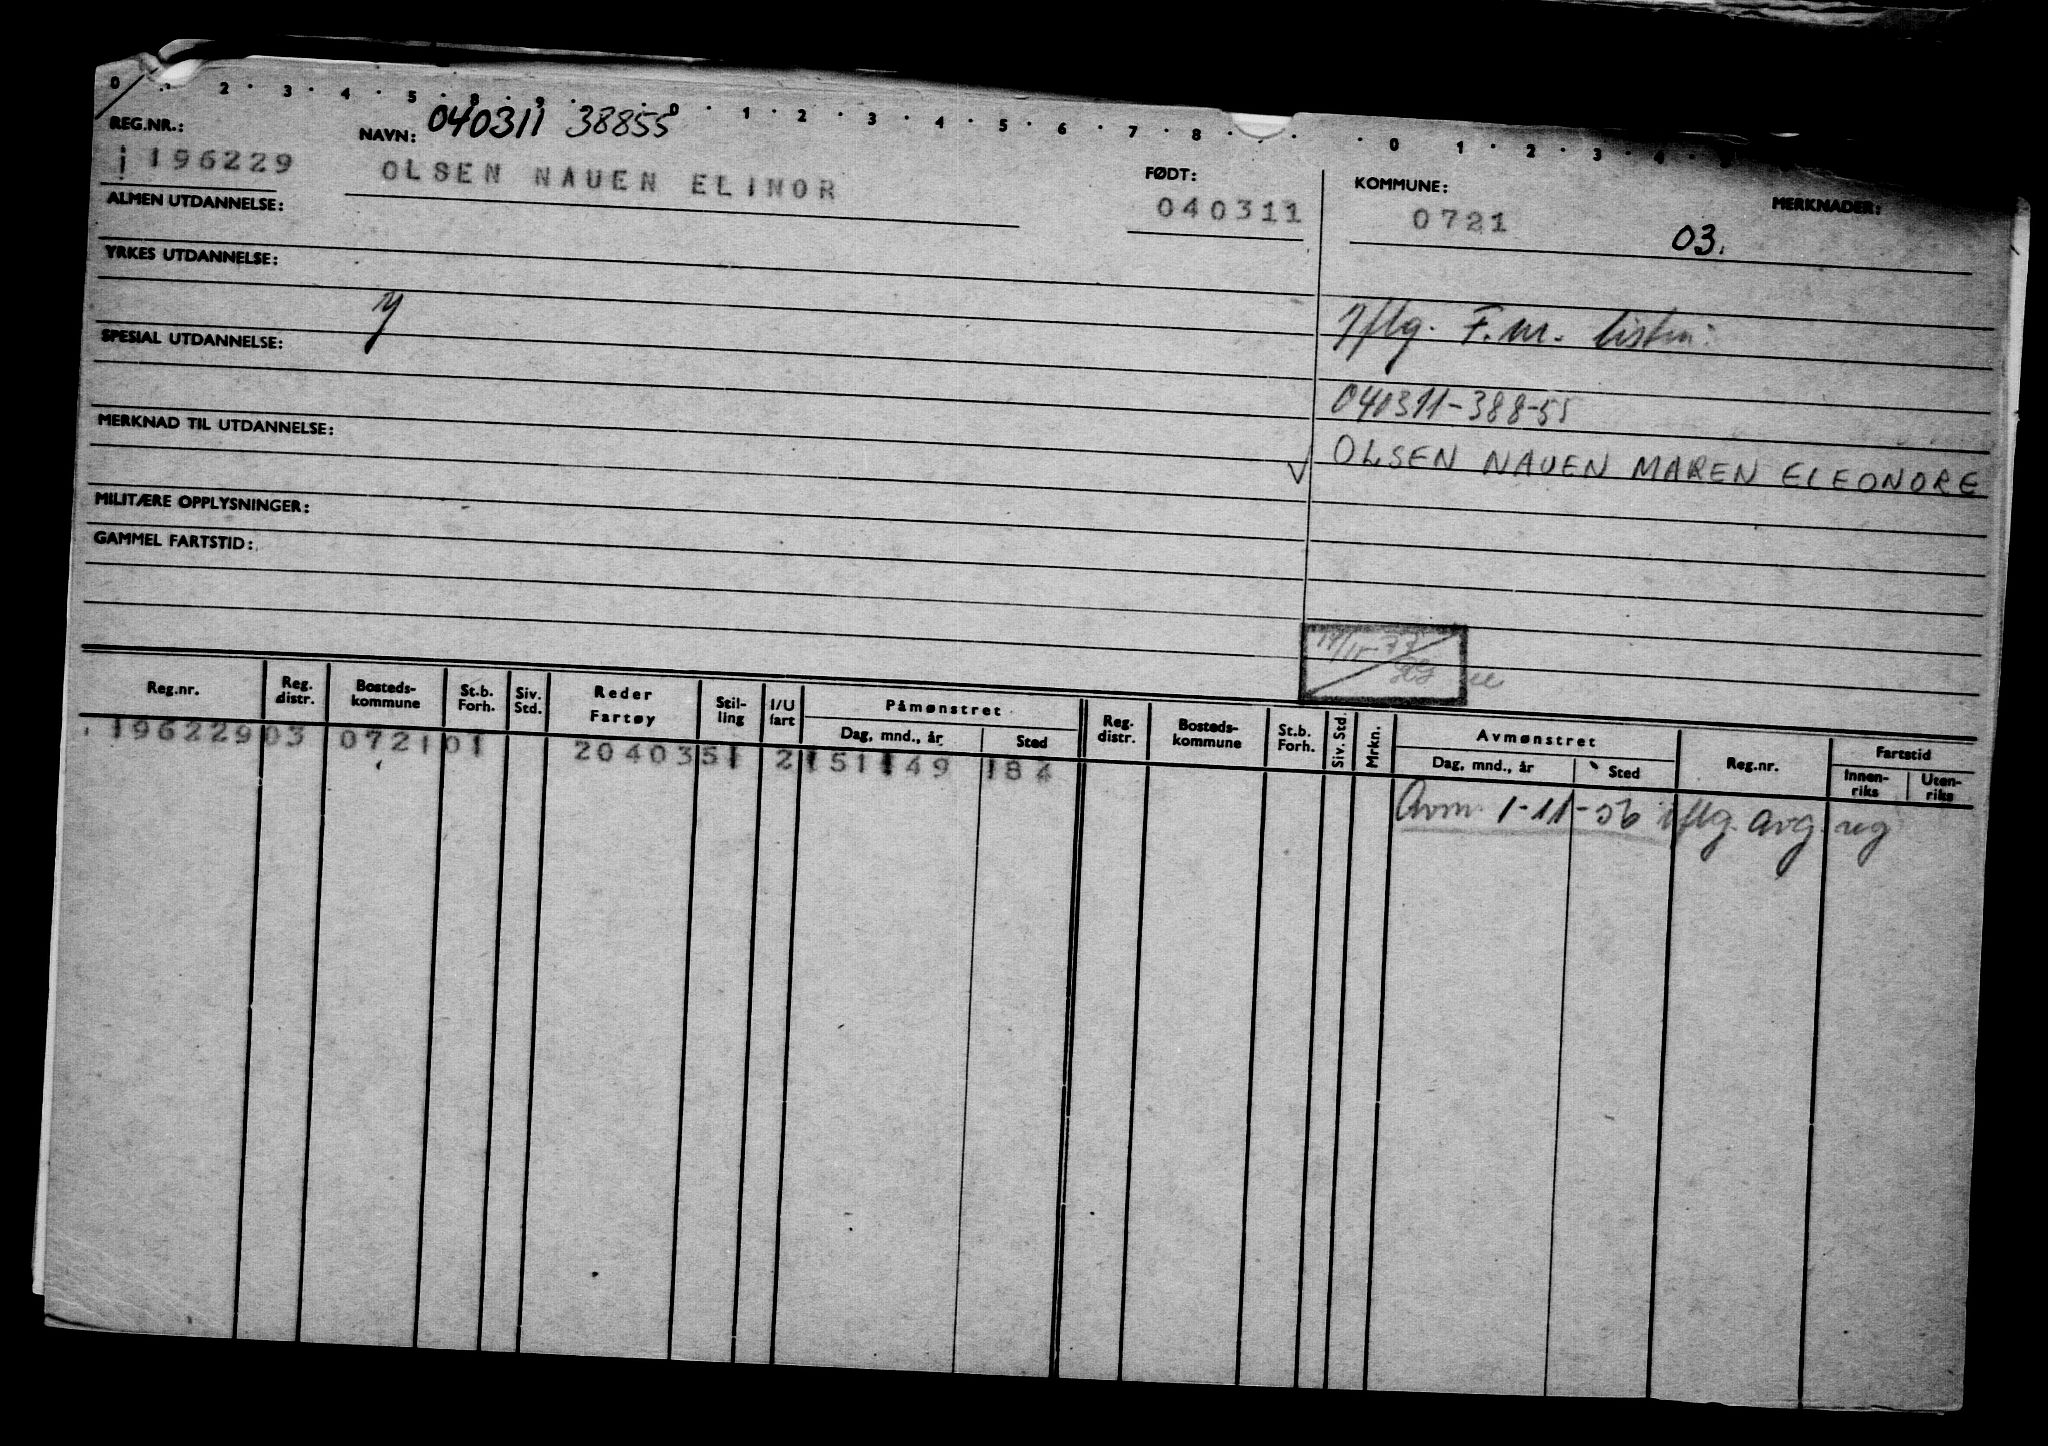 0 . 2 . 3 . 4 . 5 . 8 . 9 . . 0 . 1 . 2 . 3 . 4 . 5 . 6 . 7 . 8 . . . 0 . 1 . 2 . 3 . 4 .
REG.NR.:
NAVN: 040311 38855
196229
OLSEN NAUEN ELINOR
FØDT:
040311
KOMMUNE:
0721
MERKNADER:
03.
ALMEN UTDANNELSE:
YRKES UTDANNELSE:
y
Iflg. F.nr. listen:
SPESIAL UTDANNELSE:
040311-388-55
MERKNAD TIL UTDANNELSE:
OLSEN NAUEN MAREN ELEONORE
MILITÆRE OPPLYSNINGER:
GAMMEL FARTSTID:
Reg.nr.
Reg. distr.
Bosteds-kommune
St.b. Forh.
Siv. Std.
Reder Fartøy
Stil-ling
I/U fart
Påmønstret
Dag, mnd., år
Sted
Reg. distr.
Bosteds-kommune
St.b. Forh.
Siv. Std.
Mrkn.
Avmønstret
Dag, mnd., år
Sted
Reg.nr.
Fartstid
Innen-riks
Uten-riks
196229 03 0721 01 204035 1 2 151149 184
Avm. 1-11-56 iflg. avg. reg